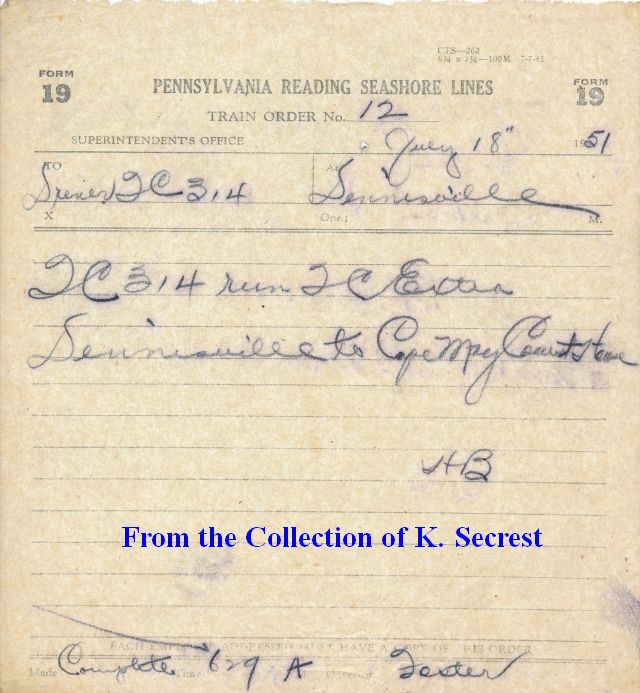 CTS—262
6¾ x 7¼—100M 7-7-45
FORM 19
PENNSYLVANIA READING SEASHORE LINES
FORM 19
TRAIN ORDER No. 12
SUPERINTENDENT'S OFFICE
July 18" 1951
TO
At
Driver TC 314
Dennisville
X
Opr.;
M.
TC 314 run TC Extra
Dennisville to Cape May Court House
HB
From the Collection of K. Secrest
EACH EMPLOYE ADDRESSED MUST HAVE A COPY OF THIS ORDER
Made Complete Time 629 A M Operator Tester